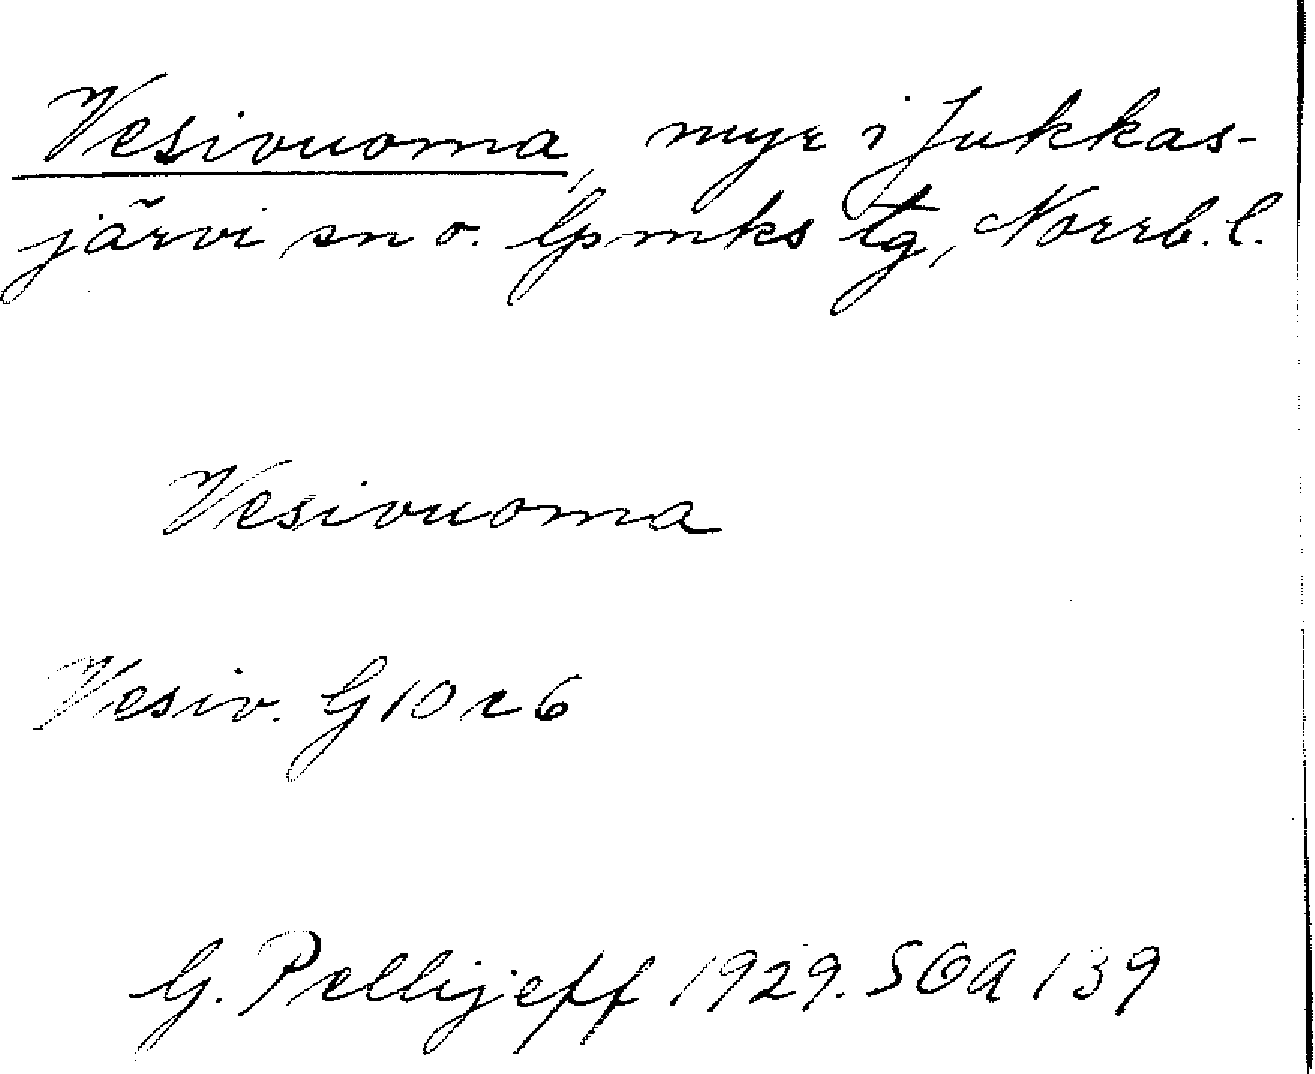 Vesivuoma, myr i Jukkas-
järvi sn o. lpmks tg, Norrb. l.
Vesivuoma
Vesiv. G 10 r 6
G. Pellijeff 1929. SOA 139